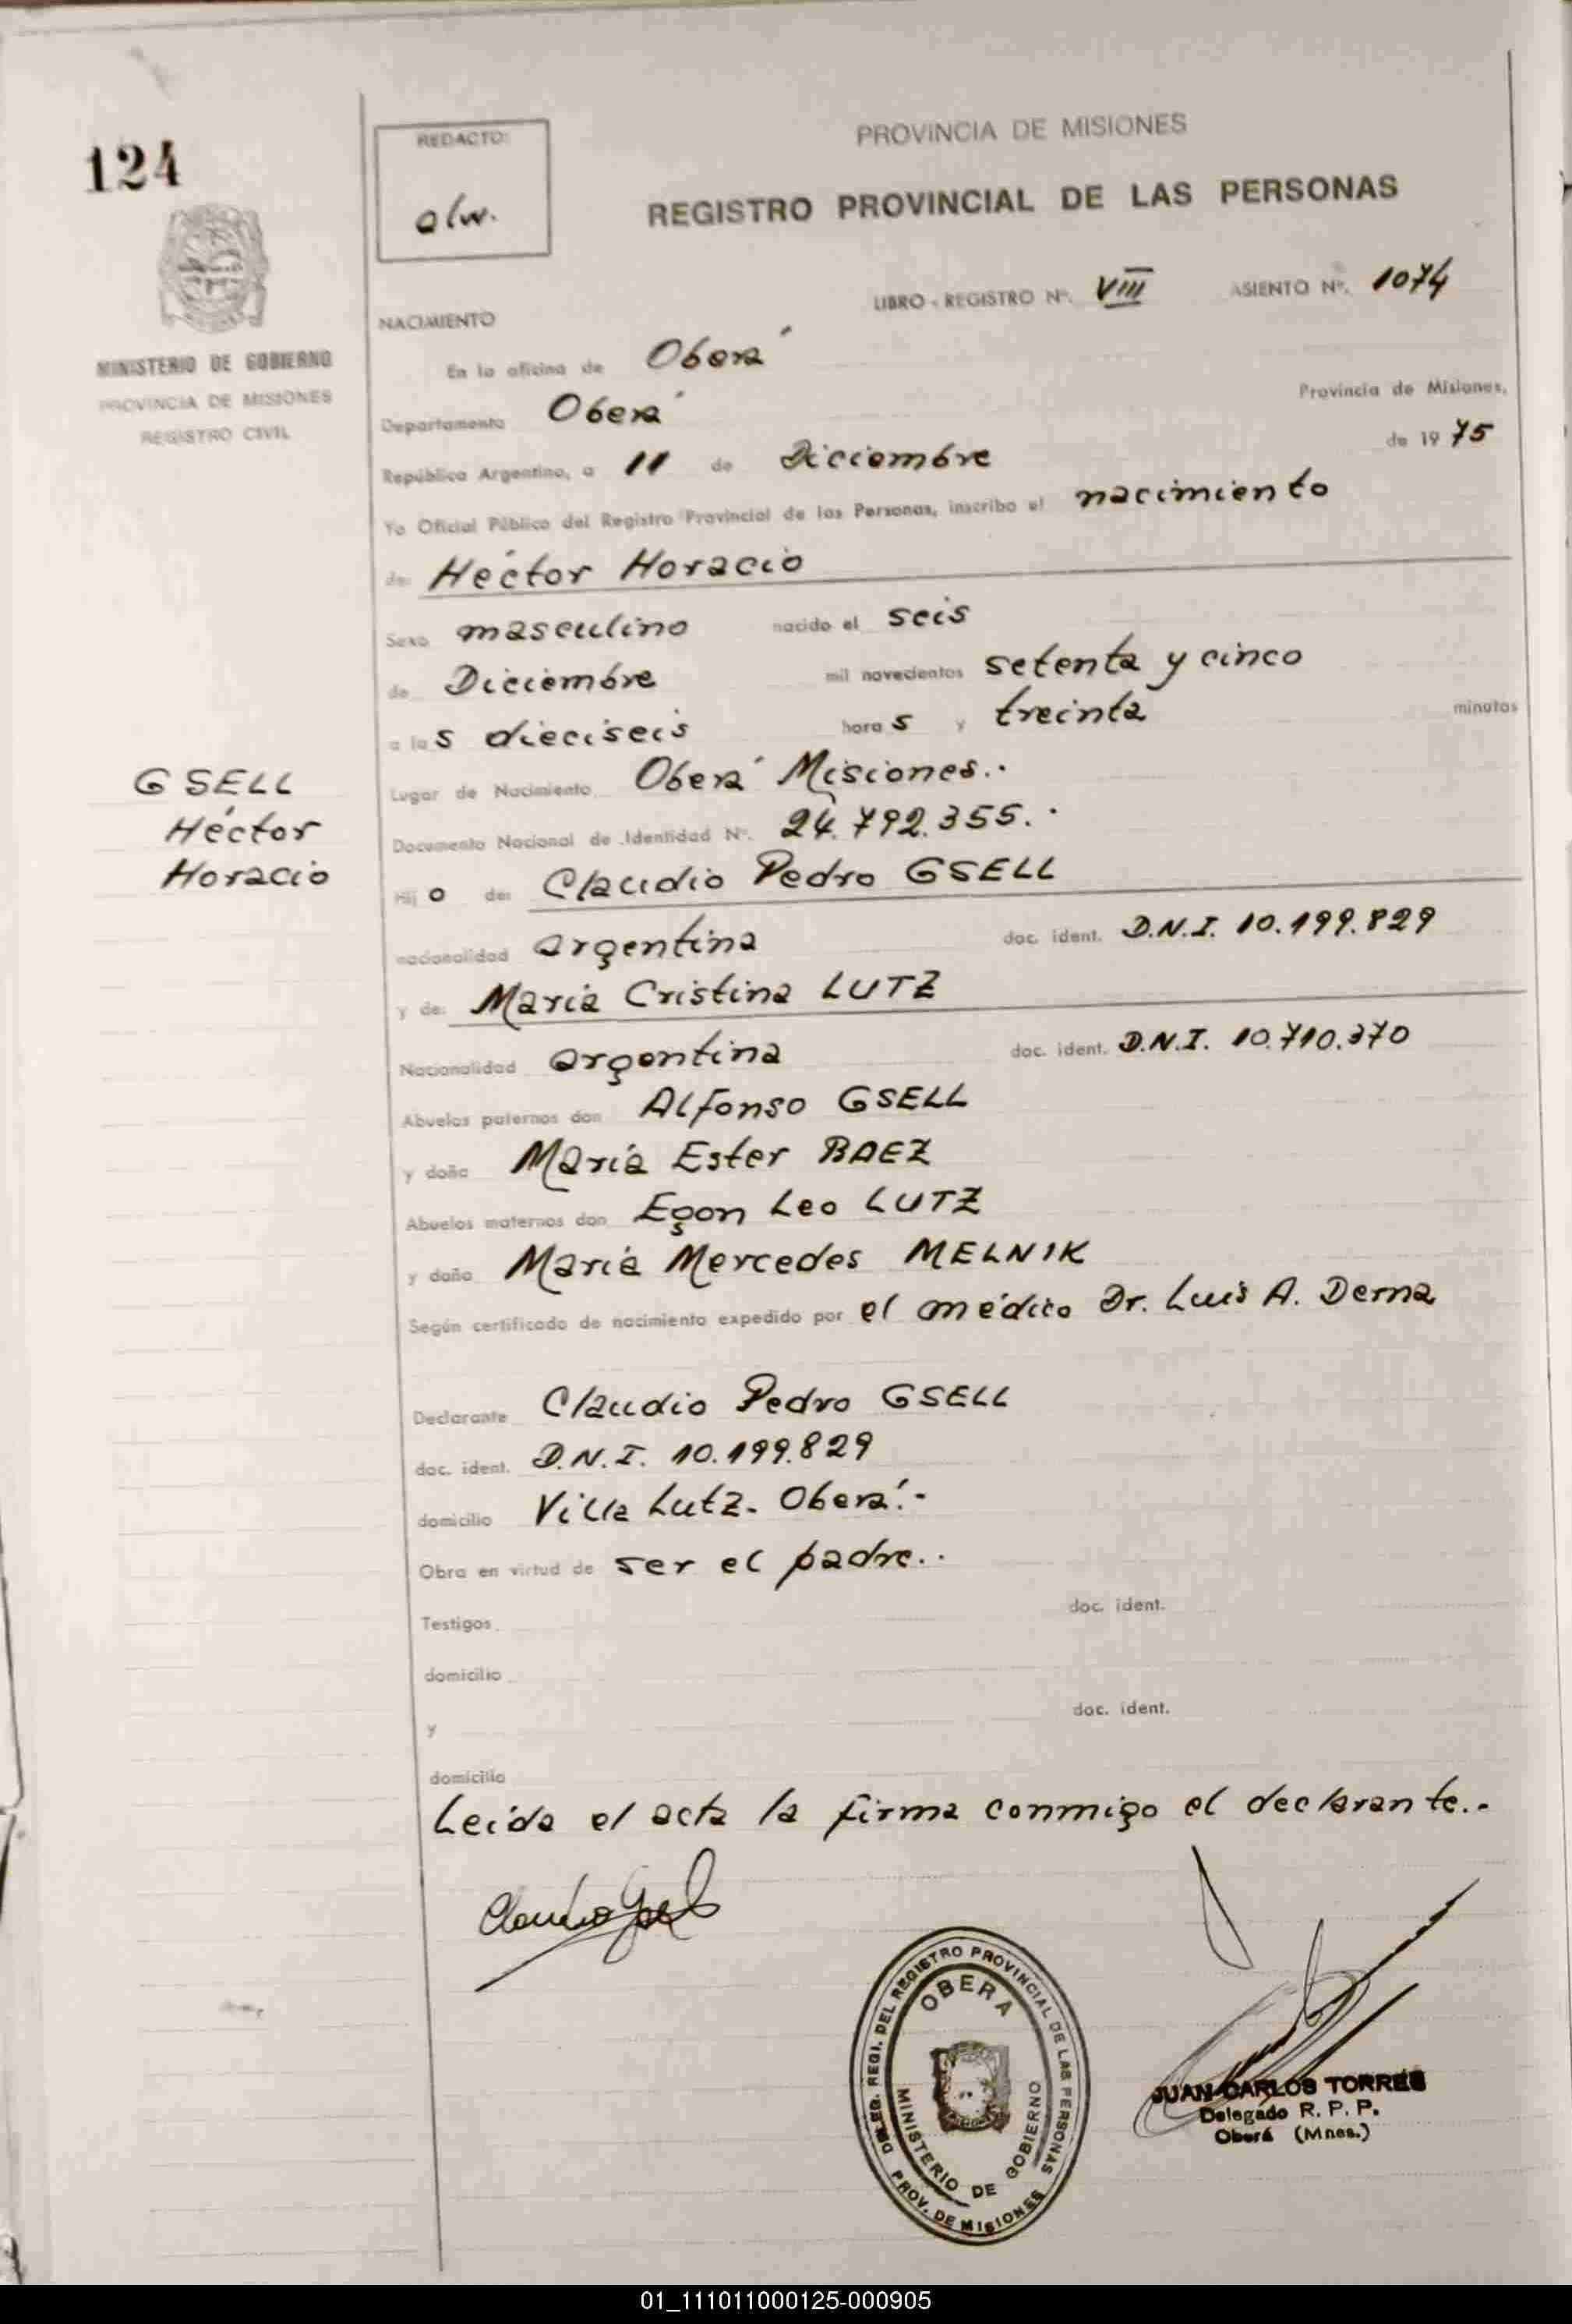 124
REDACTO:
alw.
PROVINCIA DE MISIONES
REGISTRO PROVINCIAL DE LAS PERSONAS
MINISTERIO DE GOBIERNO
PROVINCIA DE MISIONES
REGISTRO CIVIL
LIBRO - REGISTRO Nº. VIII ASIENTO Nº. 1074
NACIMIENTO
En la oficina de Oberá
Departamento Oberá Provincia de Misiones,
República Argentina, a 11 de Diciembre de 1975
Yo Oficial Público del Registro Provincial de las Personas, inscribo el nacimiento
de: Héctor Horacio
Sexo masculino nacido el seis
de Diciembre mil novecientos setenta y cinco
a las dieciseis horas y treinta minutos
Lugar de Nacimiento Oberá Misiones..
Documento Nacional de Identidad Nº. 24.792.355.
GSELL
Héctor
Horacio
Hijo de: Claudio Pedro GSELL
nacionalidad argentina doc. ident. D.N.I. 10.199.829
y de: María Cristina LUTZ
Nacionalidad argentina doc. ident. D.N.I. 10.710.370
Abuelos paternos don Alfonso GSELL
y doña María Ester BAEZ
Abuelos maternos don Egon Leo LUTZ
y doña María Mercedes MELNIK
Según certificado de nacimiento expedido por el médico Dr. Luis A. Derna
Declarante Claudio Pedro GSELL
doc. ident. D.N.I. 10.199.829
domicilio Villa Lutz. Oberá.-
Obra en virtud de ser el padre..
Testigos doc. ident.
domicilio
y doc. ident.
domicilio
Leída el acta la firma conmigo el declarante..
Claudio Gsell
DELEG. REGI. DEL REGISTRO PROVINCIAL DE LAS PERSONAS
OBERA
MINISTERIO DE GOBIERNO
PROV. DE MISIONES
JUAN CARLOS TORRES
Delegado R. P. P.
Oberá (Mnes.)
01_111011000125-000905